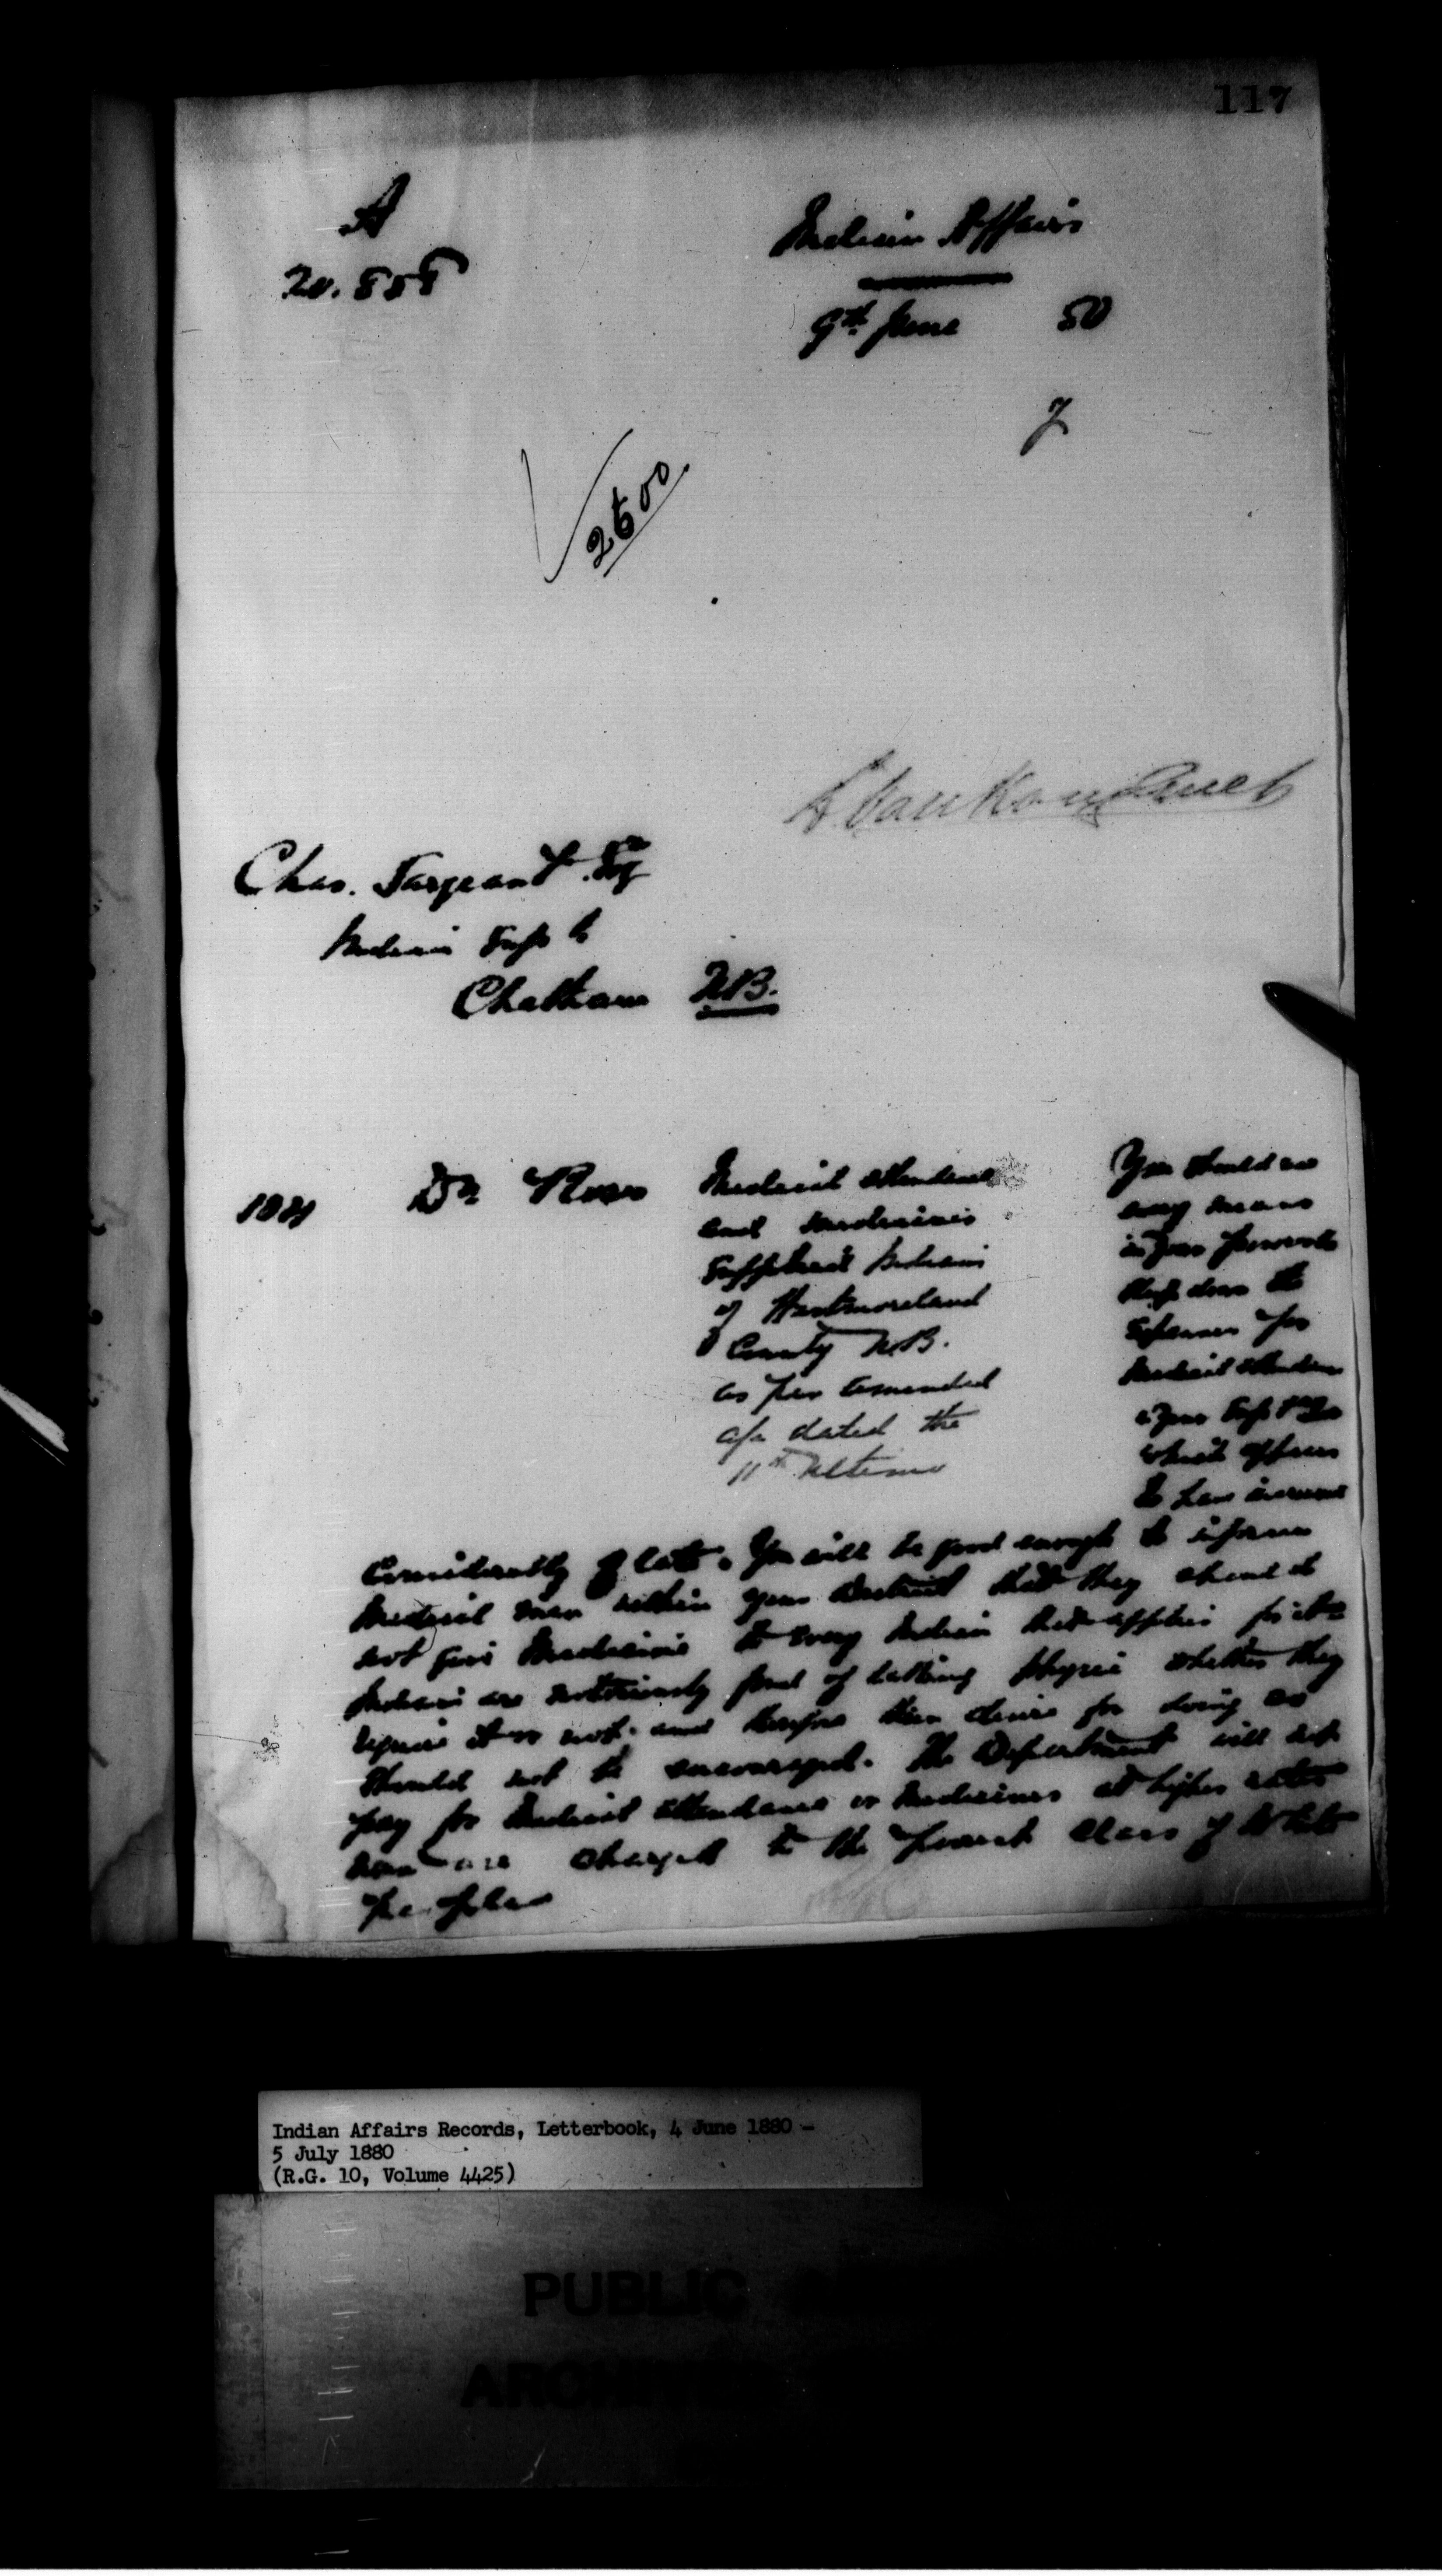 117
A
20.
Indian Affairs
9th June 80
L. Vankoughnet
Chas. Sargeant Esq
Indian Supt
Chatham N.B.
Dr
Medical attendance
and medicines
supplied Indians
of Westmoreland
County N.B.
as per amended
a/c dated the
11th Ultimo
You should use
every means
in your power to
keep down the
expenses for
Medical attendance
in your Supt
which appears
to have increased
Considerably of late. You will be good enough to inform
Medical men within your District that they should
not give Medicine to every Indian that applies for it
Indians are notoriously fond of taking physic whether they
require it or not and therefore their desire for doing so
should not be encouraged. The Department will not
pay for Medical attendance or Medicines at higher rates
than are charged to the poorest class of White
people
Indian Affairs Records, Letterbook, 4 June 1880 -
5 July 1880
(R.G. 10, Volume 4425)
PUBLIC
ARCHIVES